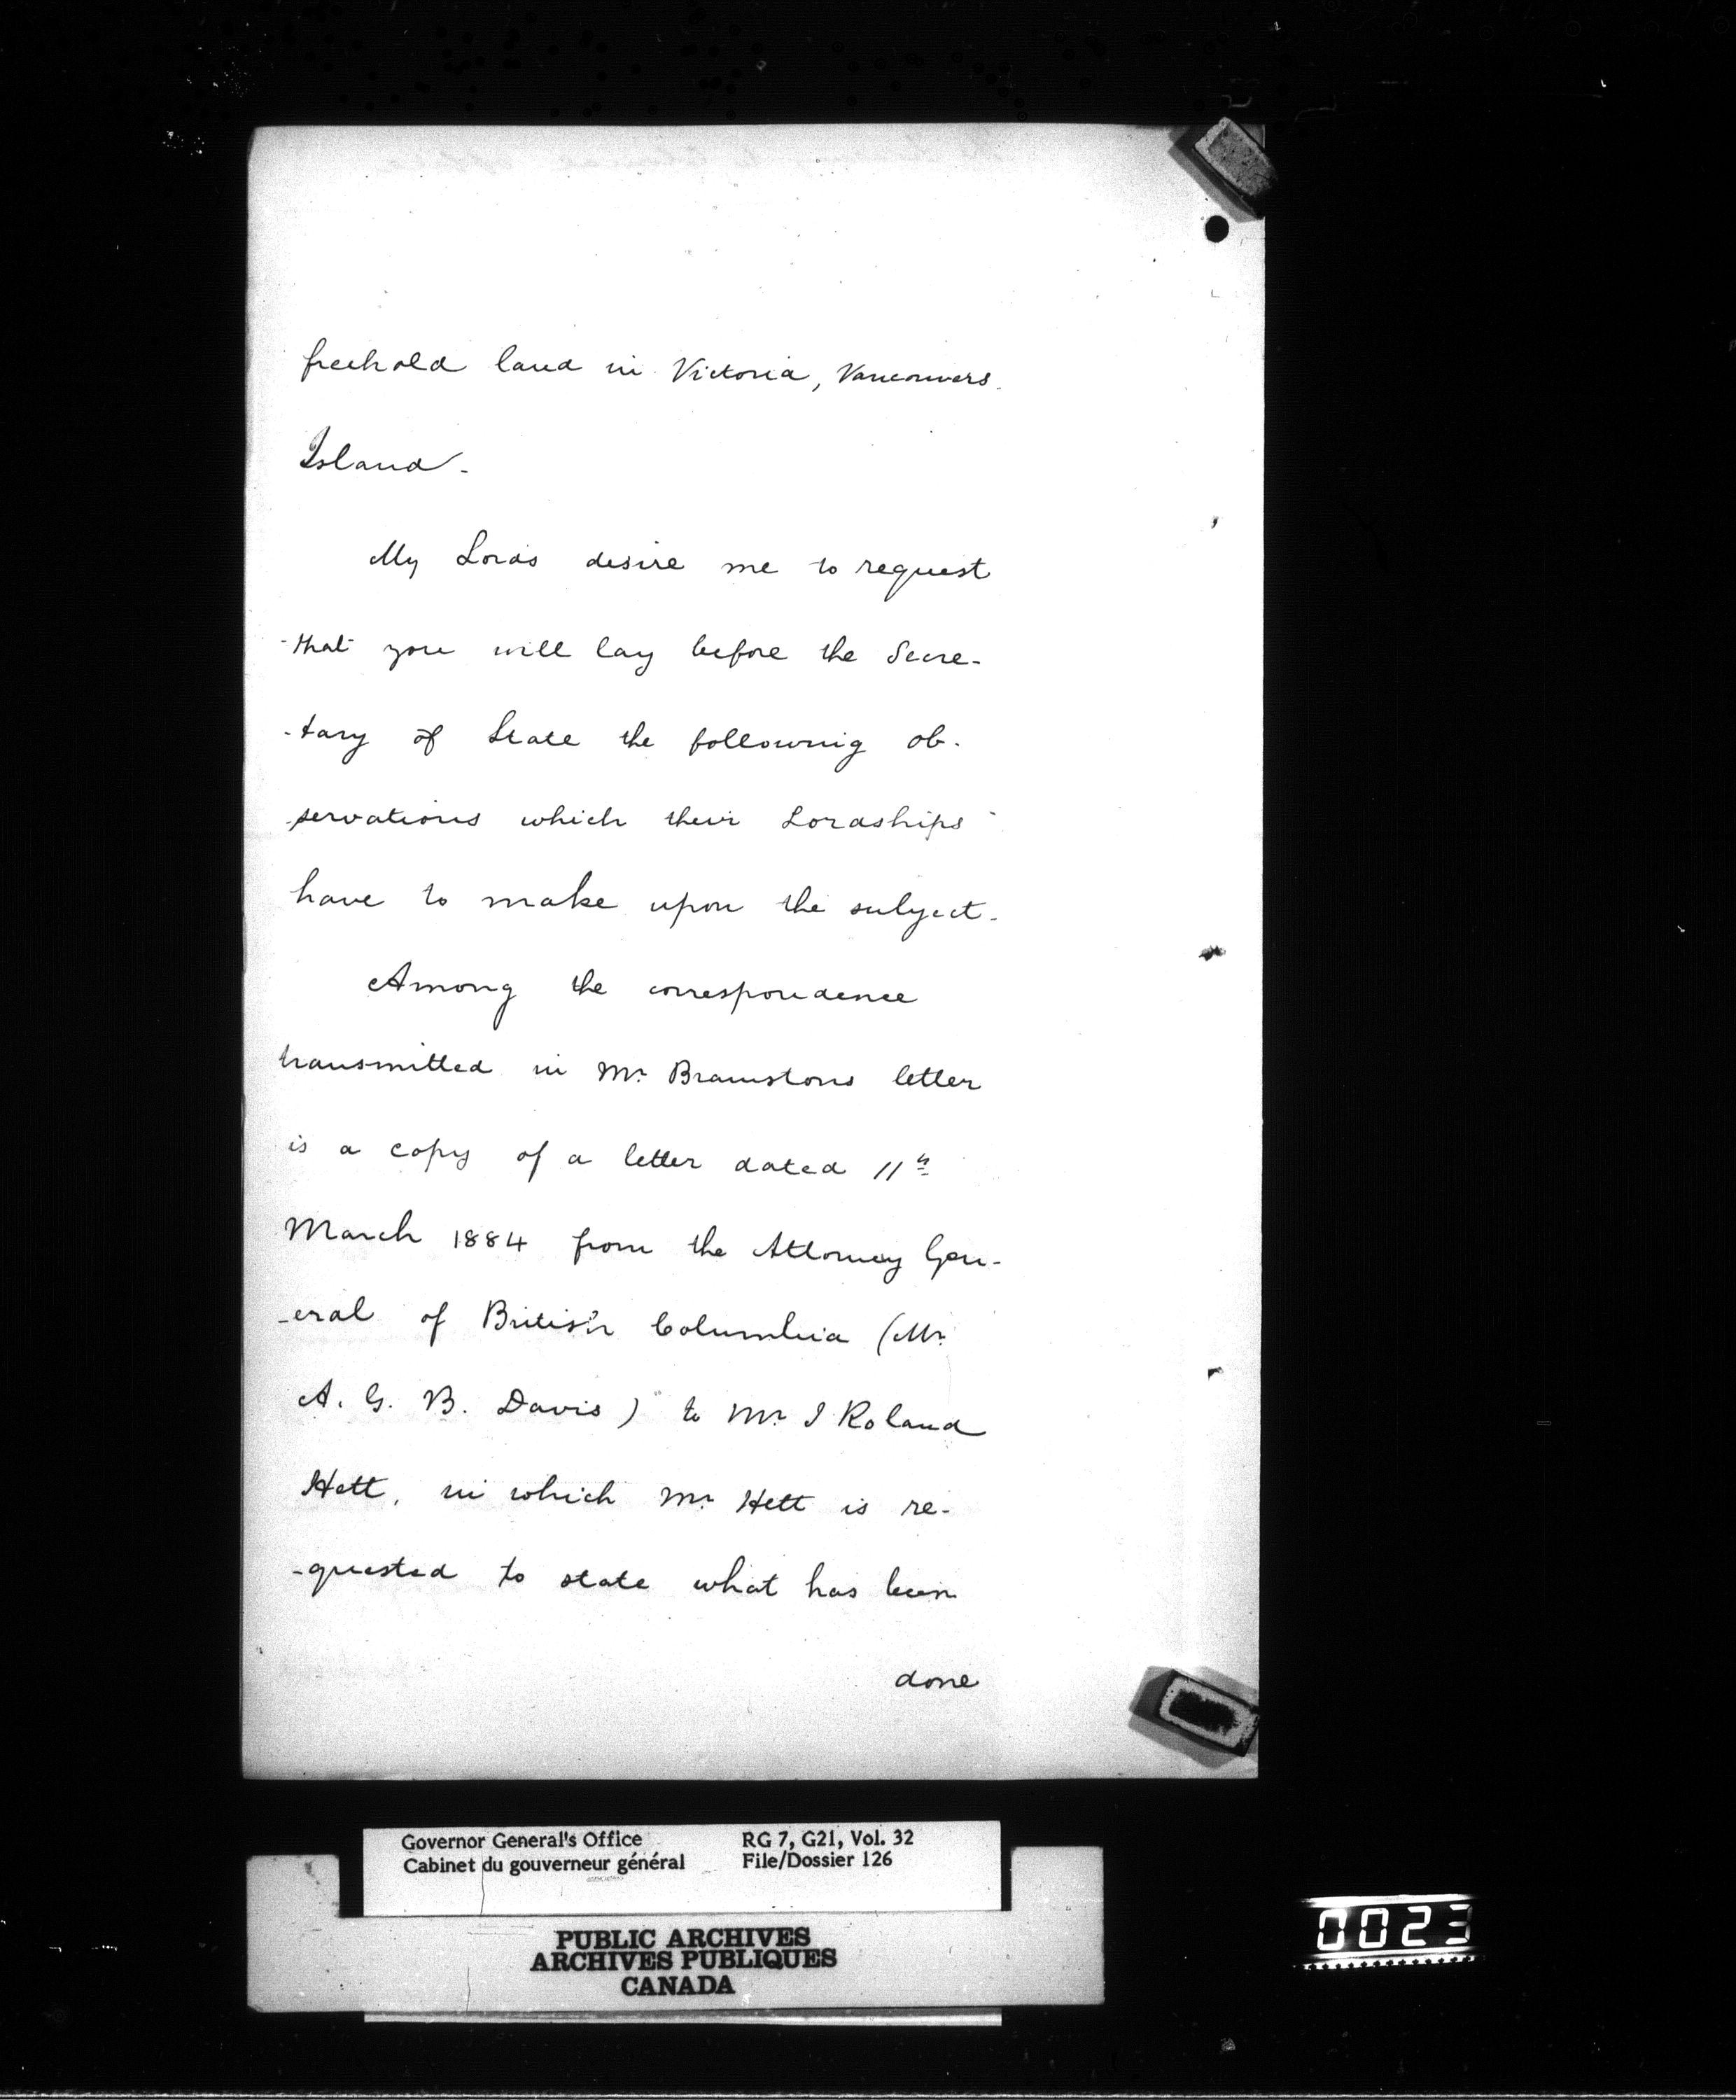 freehold land in Victoria, Vancouvers
Island.
My Lords desire me to request
that you will lay before the Secre-
-tary of State the following ob-
-servations which their Lordships
have to make upon the subject.
Among the correspondence
transmitted in Mr Bramstons letter
is a copy of a letter dated 11th
March 1884 from the Attorney Gen-
-eral of British Columbia (Mr
A. G. B. Davis) to Mr I Roland
Hett, in which Mr Hett is re-
-quested to state what has been
done
Governor General's Office
Cabinet du gouverneur général
RG 7, G21, Vol. 32
File/Dossier 126
PUBLIC ARCHIVES
ARCHIVES PUBLIQUES
CANADA
0023